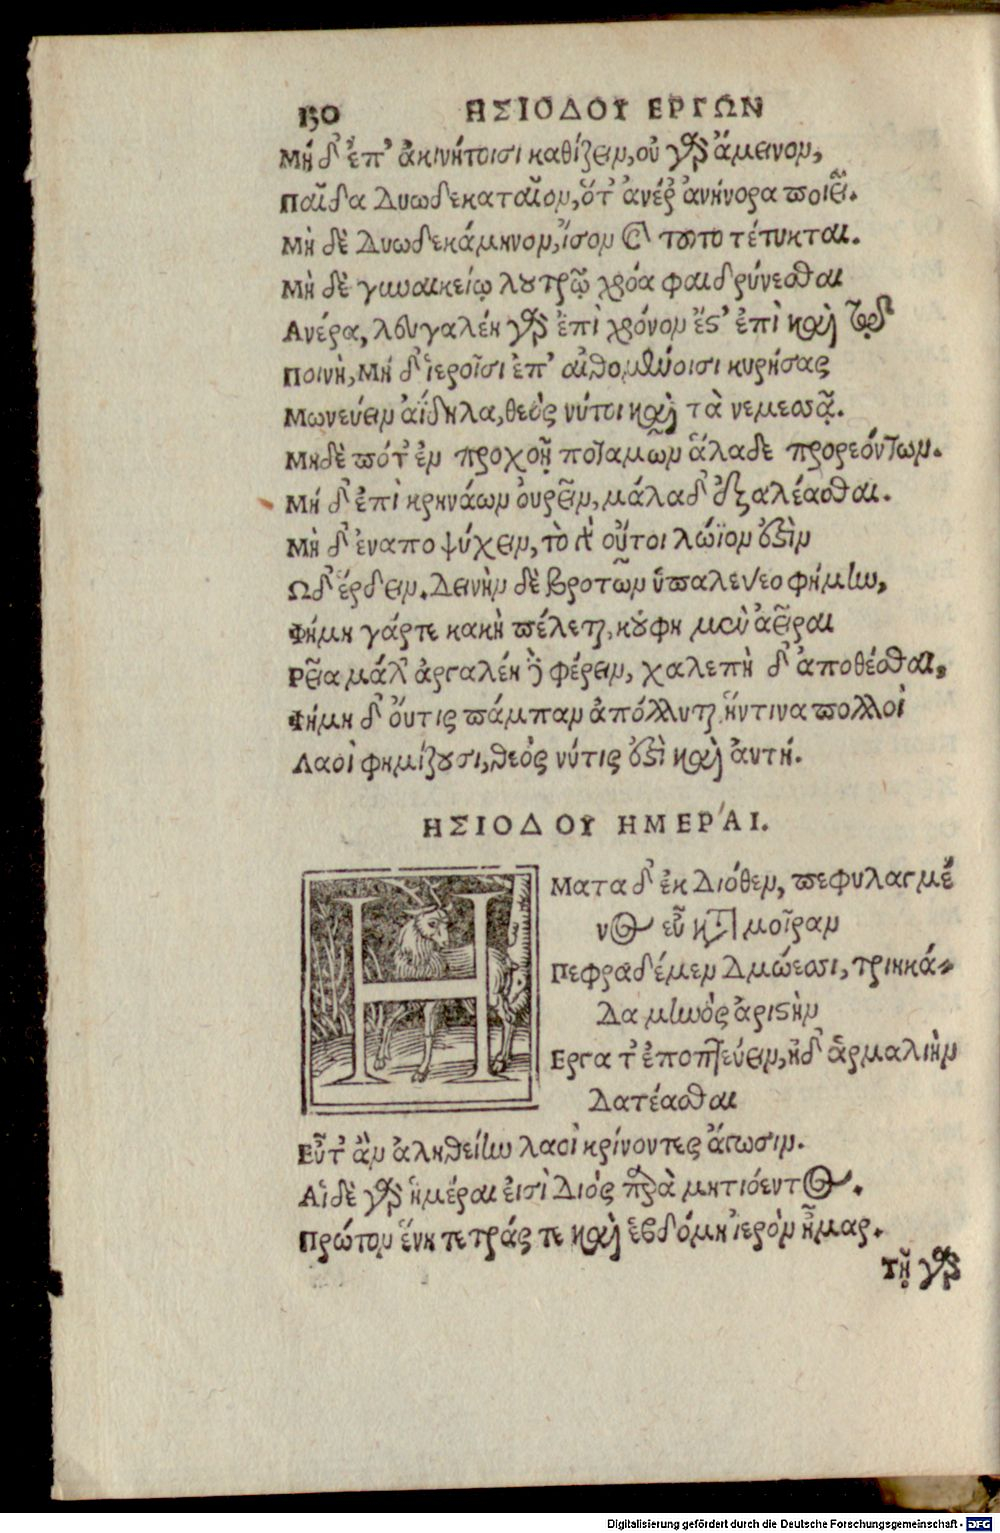 130 ΗΣΙΟΔΟΥ ΕΡΓΩΝ
Μή δ' ἐπ' ἀκινήτοισι καθίζειν, οὐ γὰρ ἄμεινον,
Παῖδα Δυωδεκαταῖον, ὅτ' ἀνέρ' ἀνήνορα ποιεῖ.
Μὴ δὲ Δυωδεκάμηνον, ἴσον καὶ τοῦτο τέτυκται.
Μὴ δὲ γυναικείῳ λουτρῷ χρόα φαιδρύνεσθαι
Ανέρα, λευγαλέη γὰρ ἐπὶ χρόνον ἔστ' ἐπὶ καὶ τῷ
Ποινή, Μή δ' ἱεροῖσι ἐπ' αἰθομένοισι κυρήσας
Μωνεύειν ἀΐδηλα, θεός νύτοι καὶ τὰ νεμεσσᾷ.
Μηδὲ πότ' ἐν προχοῇ ποταμῶν ἅλαδε προρεόντων.
Μή δ' ἐπὶ κρηνάων οὐρεῖν, μάλα δ' ἐξαλέασθαι.
Μὴ δ' ἐναποψύχειν, τὸ γὰρ οὔτοι λώϊον ἐστὶν
Ωδ' ἔρδειν. Δεινὴν δὲ βροτῶν ὑπαλεύεο φήμην,
Φήμη γάρτε κακὴ πέλεται, κούφη μὲν ἀεῖραι
Ρεῖα μάλ' ἀργαλέη δὲ φέρειν, χαλεπὴ δ' ἀποθέσθαι,
Φήμη δ' οὔτις πάμπαν ἀπόλλυται ἥντινα πολλοὶ
Λαοὶ φημίζουσι, θεός νύτις ἐστὶ καὶ ἀυτή.
ΗΣΙΟΔΟΥ ΗΜΕΡΑΙ.
Ηματα δ' ἐκ Διόθεν, πεφυλαγμέ
νος εὖ κατὰ μοῖραν
Πεφραδέμεν Δμώεσσι, τριηκά-
Δα μηνός ἀριστὴν
Εργα τ' ἐποπτεύειν, ἠδ' ἁρμαλιὴν
Δατέασθαι
Εὖτ' ἂν ἀληθείην λαοὶ κρίνοντες ἄγωσιν.
Αἱ δὲ γὰρ ἡμέραι εἰσὶ Διός παρὰ μητιόεντος.
Πρώτον ἕνη τετράς τε καὶ ἑβδόμη ἱερὸν ἦμαρ.
Τῇ γὰρ
Digitalisierung gefördert durch die Deutsche Forschungsgemeinschaft - DFG